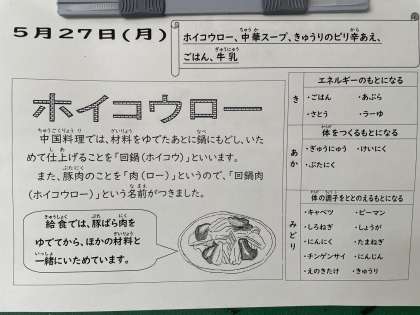 5月27日(月)
ホイコウロー、中華スープ、きゅうりのピリ辛あえ、
ごはん、牛乳
ホイコウロー
中国料理では、材料をゆでたあとに鍋にもどし、いた
めて仕上げることを「回鍋(ホイコウ)」といいます。
また、豚肉のことを「肉(ロー)」というので、「回鍋肉
(ホイコウロー)」という名前がつきました。
給食では、豚ばら肉を
ゆでてから、ほかの材料と
一緒にいためています。
き
エネルギーのもとになる
・ごはん ・あぶら
・さとう ・ラーゆ
あか
体をつくるもとになる
・ぎゅうにゅう ・けいにく
・ぶたにく
みどり
体の調子をととのえるもとになる
・キャベツ ・ピーマン
・しろねぎ ・しょうが
・にんにく ・たまねぎ
・チンゲンサイ ・にんじん
・えのきたけ ・きゅうり